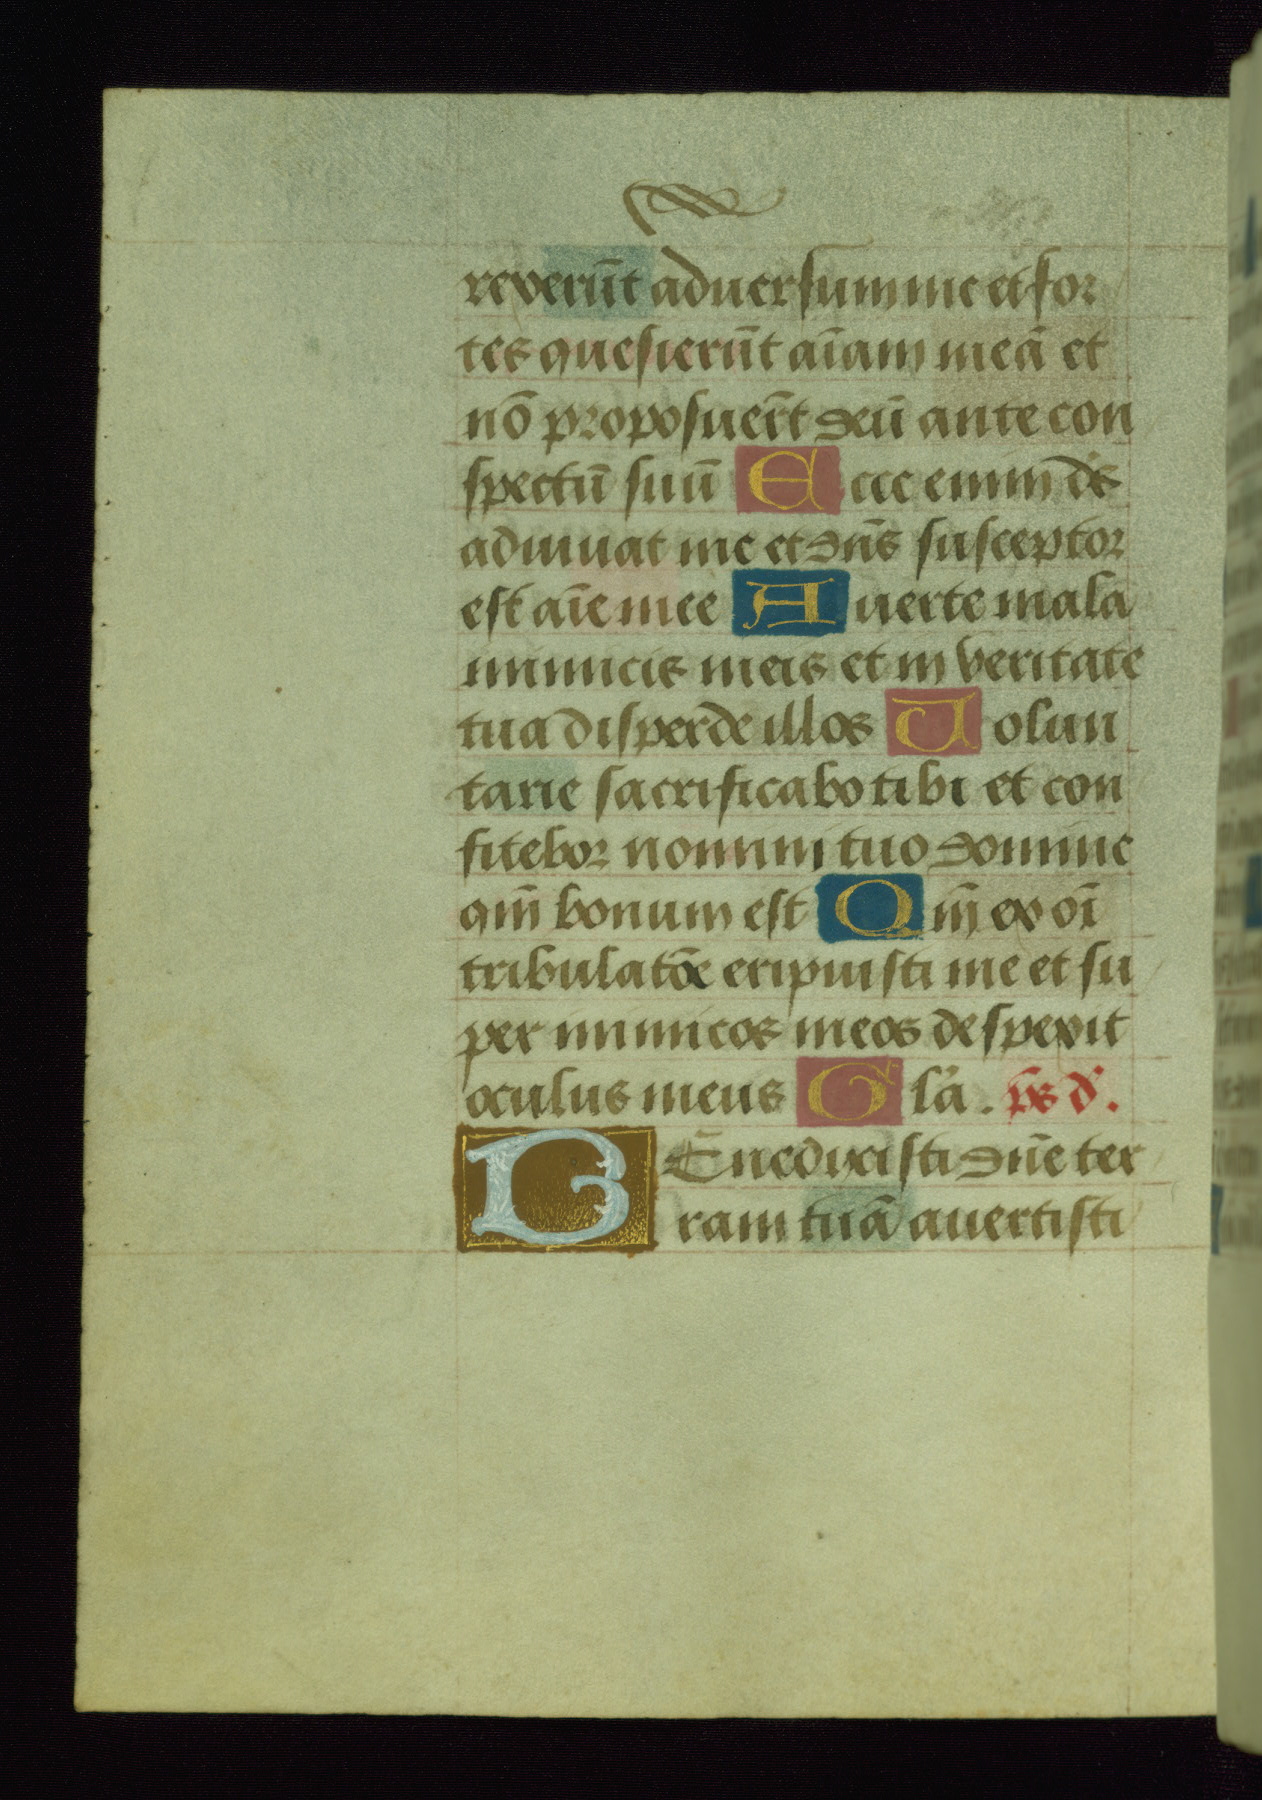 reverūt aduersum me et for
tes quesierūt aīam meā et
nō proposuert̄ deū ante con
spectū suū Ecce enim ds̄
adiuuat me et dn̄s susceptor
est aīe mee Auerte mala
inimicis meis et in veritate
tua disperde illos Uolun
tarie sacrificabo tibi et con
fitebor nomini tuo domine
qm̄ bonum est Qm̄ ex oī
tribulatōe eripuisti me et su
per inimicos meos despexit
oculus meus Glā. ps̄ d̄.
BEnedixisti dn̄e ter
ram tuā auertisti